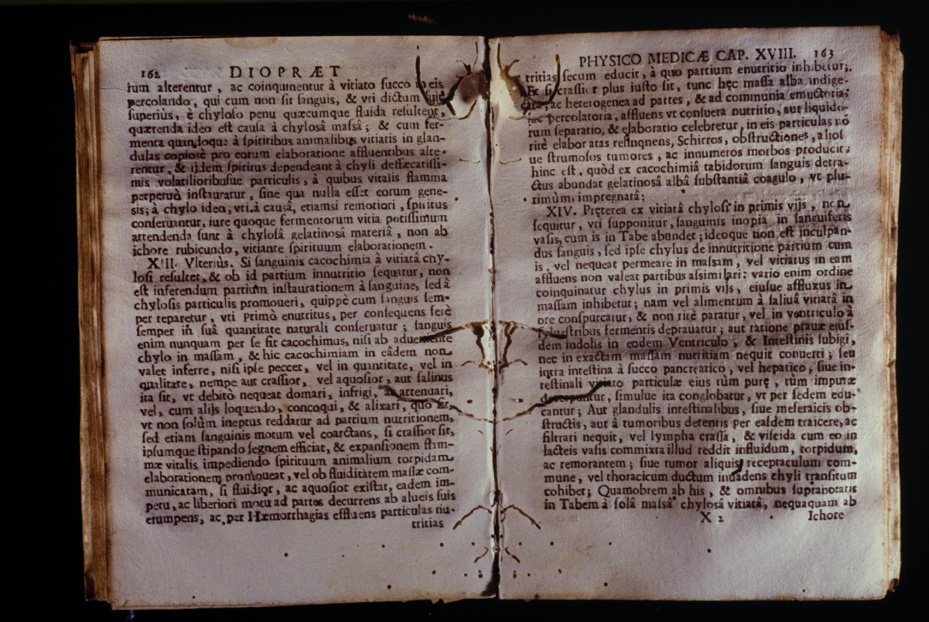 162 DIOPRÆT
rum alterentur, ac coinquinentur à vitiato succo in eis
percolando, qui cum non sit sanguis, & vti dictum fuit
superiùs, è chyloso penu quæcumque fluida resultent,
quærenda ideo est causa à chylosâ massâ; & cum fer-
menta quandoque à spiritibus animalibus vitiatis in glan-
dulas copiosè pro eorum elaboratione affluentibus alte-
rentur, & ijdem spiritus dependeant à chyli defæcatissi-
mis volatilioribusue particulis, à quibus vitalis flamma
perpetuò instauratur, sine qua nulla esset eorum gene-
sis; à chylo ideo, vti à causâ, etiamsi remotiori, spiritus
conseruantur, iure quoque fermentorum vitia potissimùm
attendenda sunt à chylosâ gelatinosâ materiâ, non ab
ichore rubicundo, vitiante spirituum elaborationem.
XIII. Vlteriùs. Si sanguinis cacochimia à vitiatâ chy-
losi resultet, & ob id partium innutritio sequatur, non
est inferendum partium instaurationem à sanguine, sed à
chylosis particulis promoueri, quippè cum sanguis sem-
per reparetur, vti Primò enutritus, per consequens ferè
semper in suâ quantitate naturali conseruatur; sanguis
enim nunquam per se fit cacochimus, nisi ab adueniente
chylo in massam, & hic cacochimiam in eâdem non
valet inferre, nisi ipse peccet, vel in quantitate, vel in
qualitate, nempe aut crassior, vel aquosior, aut salinus
ita sit, vt debitò nequeat domari, infrigi, attenuari,
vel, cum alijs loquendo, concoqui, & alixari, quo fit,
vt non solùm ineptus reddatur ad partium nutritionem,
sed etiam sanguinis motum vel coarctans, si crassior sit,
ipsumque stipando segnem efficiat, & expansionem flam-
mæ vitalis, impediendo spirituum animalium torpidam
elaborationem promoueat, vel ob fluiditatem massæ com-
municatam, si fluidior, ac aquosior existat, eadem im-
petu, ac liberiori motu ad partes decurrens ab alueis suis
erumpens, ac per Hæmorrhagias effluens particulas nu-
tritias
PHYSICO MEDICÆ CAP. XVIII. 163
tritias secum educit, à quo partium enutritio inhibetur.
Et si crassior plus iusto sit, tunc hęc massa alba indige-
sta, ac heterogenea ad partes, & ad communia emuctoria,
percolatoria, affluens vt consueta nutritio, aut liquido-
rum separatio, & elaboratio celebretur, in eis particulas nõ
ritè elaboratas relinquens, Schirros, obstructiones, aliosq
ue strumosus tumores, ac innumeros morbos producit;
hinc est, quòd ex cacochimiâ tabidorum sanguis detra-
ctus abundat gelatinosâ albâ substantiâ coagulo, vt plu-
rimùm, impregnatâ:
XIV. Pręterea ex vitiatâ chylosi in primis vijs, non
sequitur, vti supponitur, sanguinis inopia in sanguiferis
vasis, cum is in Tabe abundet; ideoque non est inculpan-
dus sanguis, sed ipse chylus de innutritione partium cum
is, vel nequeat permeare in massam, vel vitiatus in eam
affluens non valeat partibus assimilari: vario enim ordine
coinquinatur chylus in primis vijs, eiusue affluxus in
massam inhibetur; nam vel alimentum à saliuâ vitiatâ in
ore conspurcatur, & non ritè paratur, vel in ventriculo à
fermentis deprauatur; aut ratione prauæ eius-
dem indolis in eodem Ventriculo, & Intestinis subigi,
nec in exactam massam nutritiam nequit conuerti; seu
intra intestina à succo pancreatico, vel hepatico, siue in-
testinali vitiato particulæ eius tùm purę, tùm impuræ
simulue ita conglobatur, vt per sedem edu-
cantur; Aut glandulis intestinalibus, siue meseraicis ob-
structis, aut à tumoribus detentis per easdem traicere, ac
filtrari nequit, vel lympha crassa, & viscida cum eo in
lacteis vasis commixta illud reddit influidum, torpidum,
ac remorantem; siue tumor aliquis receptaculum com-
mune, vel thoracicum ductum inuadens chyli transitum
cohibet; Quamobrem ab his, & omnibus supranotatis
in Tabem à solâ massâ chylosâ vitiatâ, nequaquam ab
X 2 Ichore